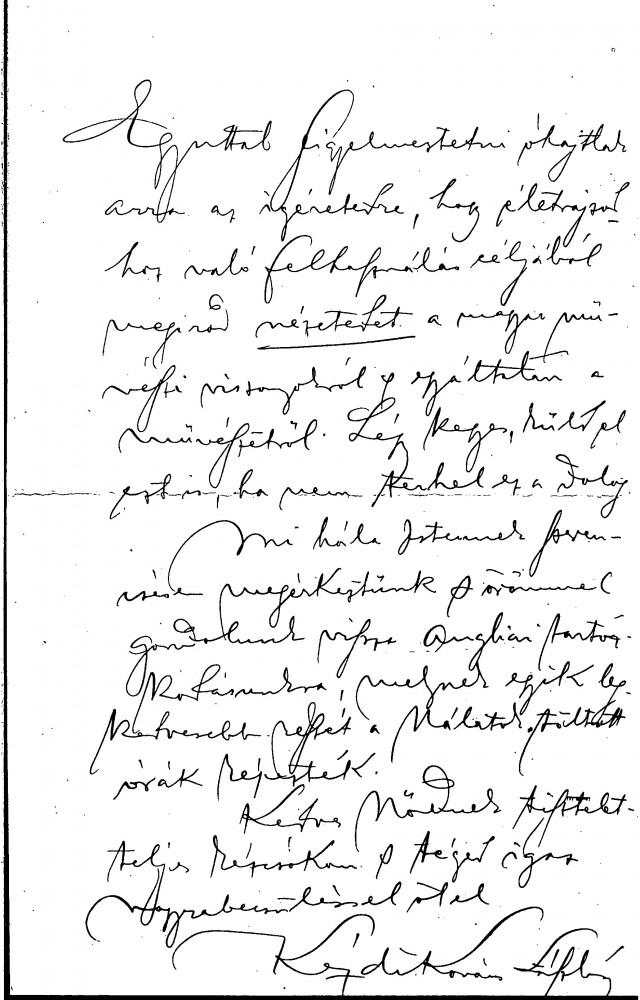 Egyuttal figyelmeztetni óhajtlak
arra az igéretedre, hogy életrajzod-
hoz való felhasználás céljából
megirod nézetedet a magyar mü-
vészi viszonyokról s egyáltalán a
müvészetről. Légy kegyes, küld el
ezt is, ha nem terhel ez a dolog
Mi hála Istennek szeren-
csésen megérkeztünk s örömmel
gondolunk vissza Angliai tartóz-
kodásunkra, melynek egyik leg-
kedvesebb részét a Nálatok töltött
órák képezték.
Kedves Nődnek tisztelet-
teljes kézcsókom s Téged igaz
nagyrabecsüléssel ölel
Kézdi-Kovács László